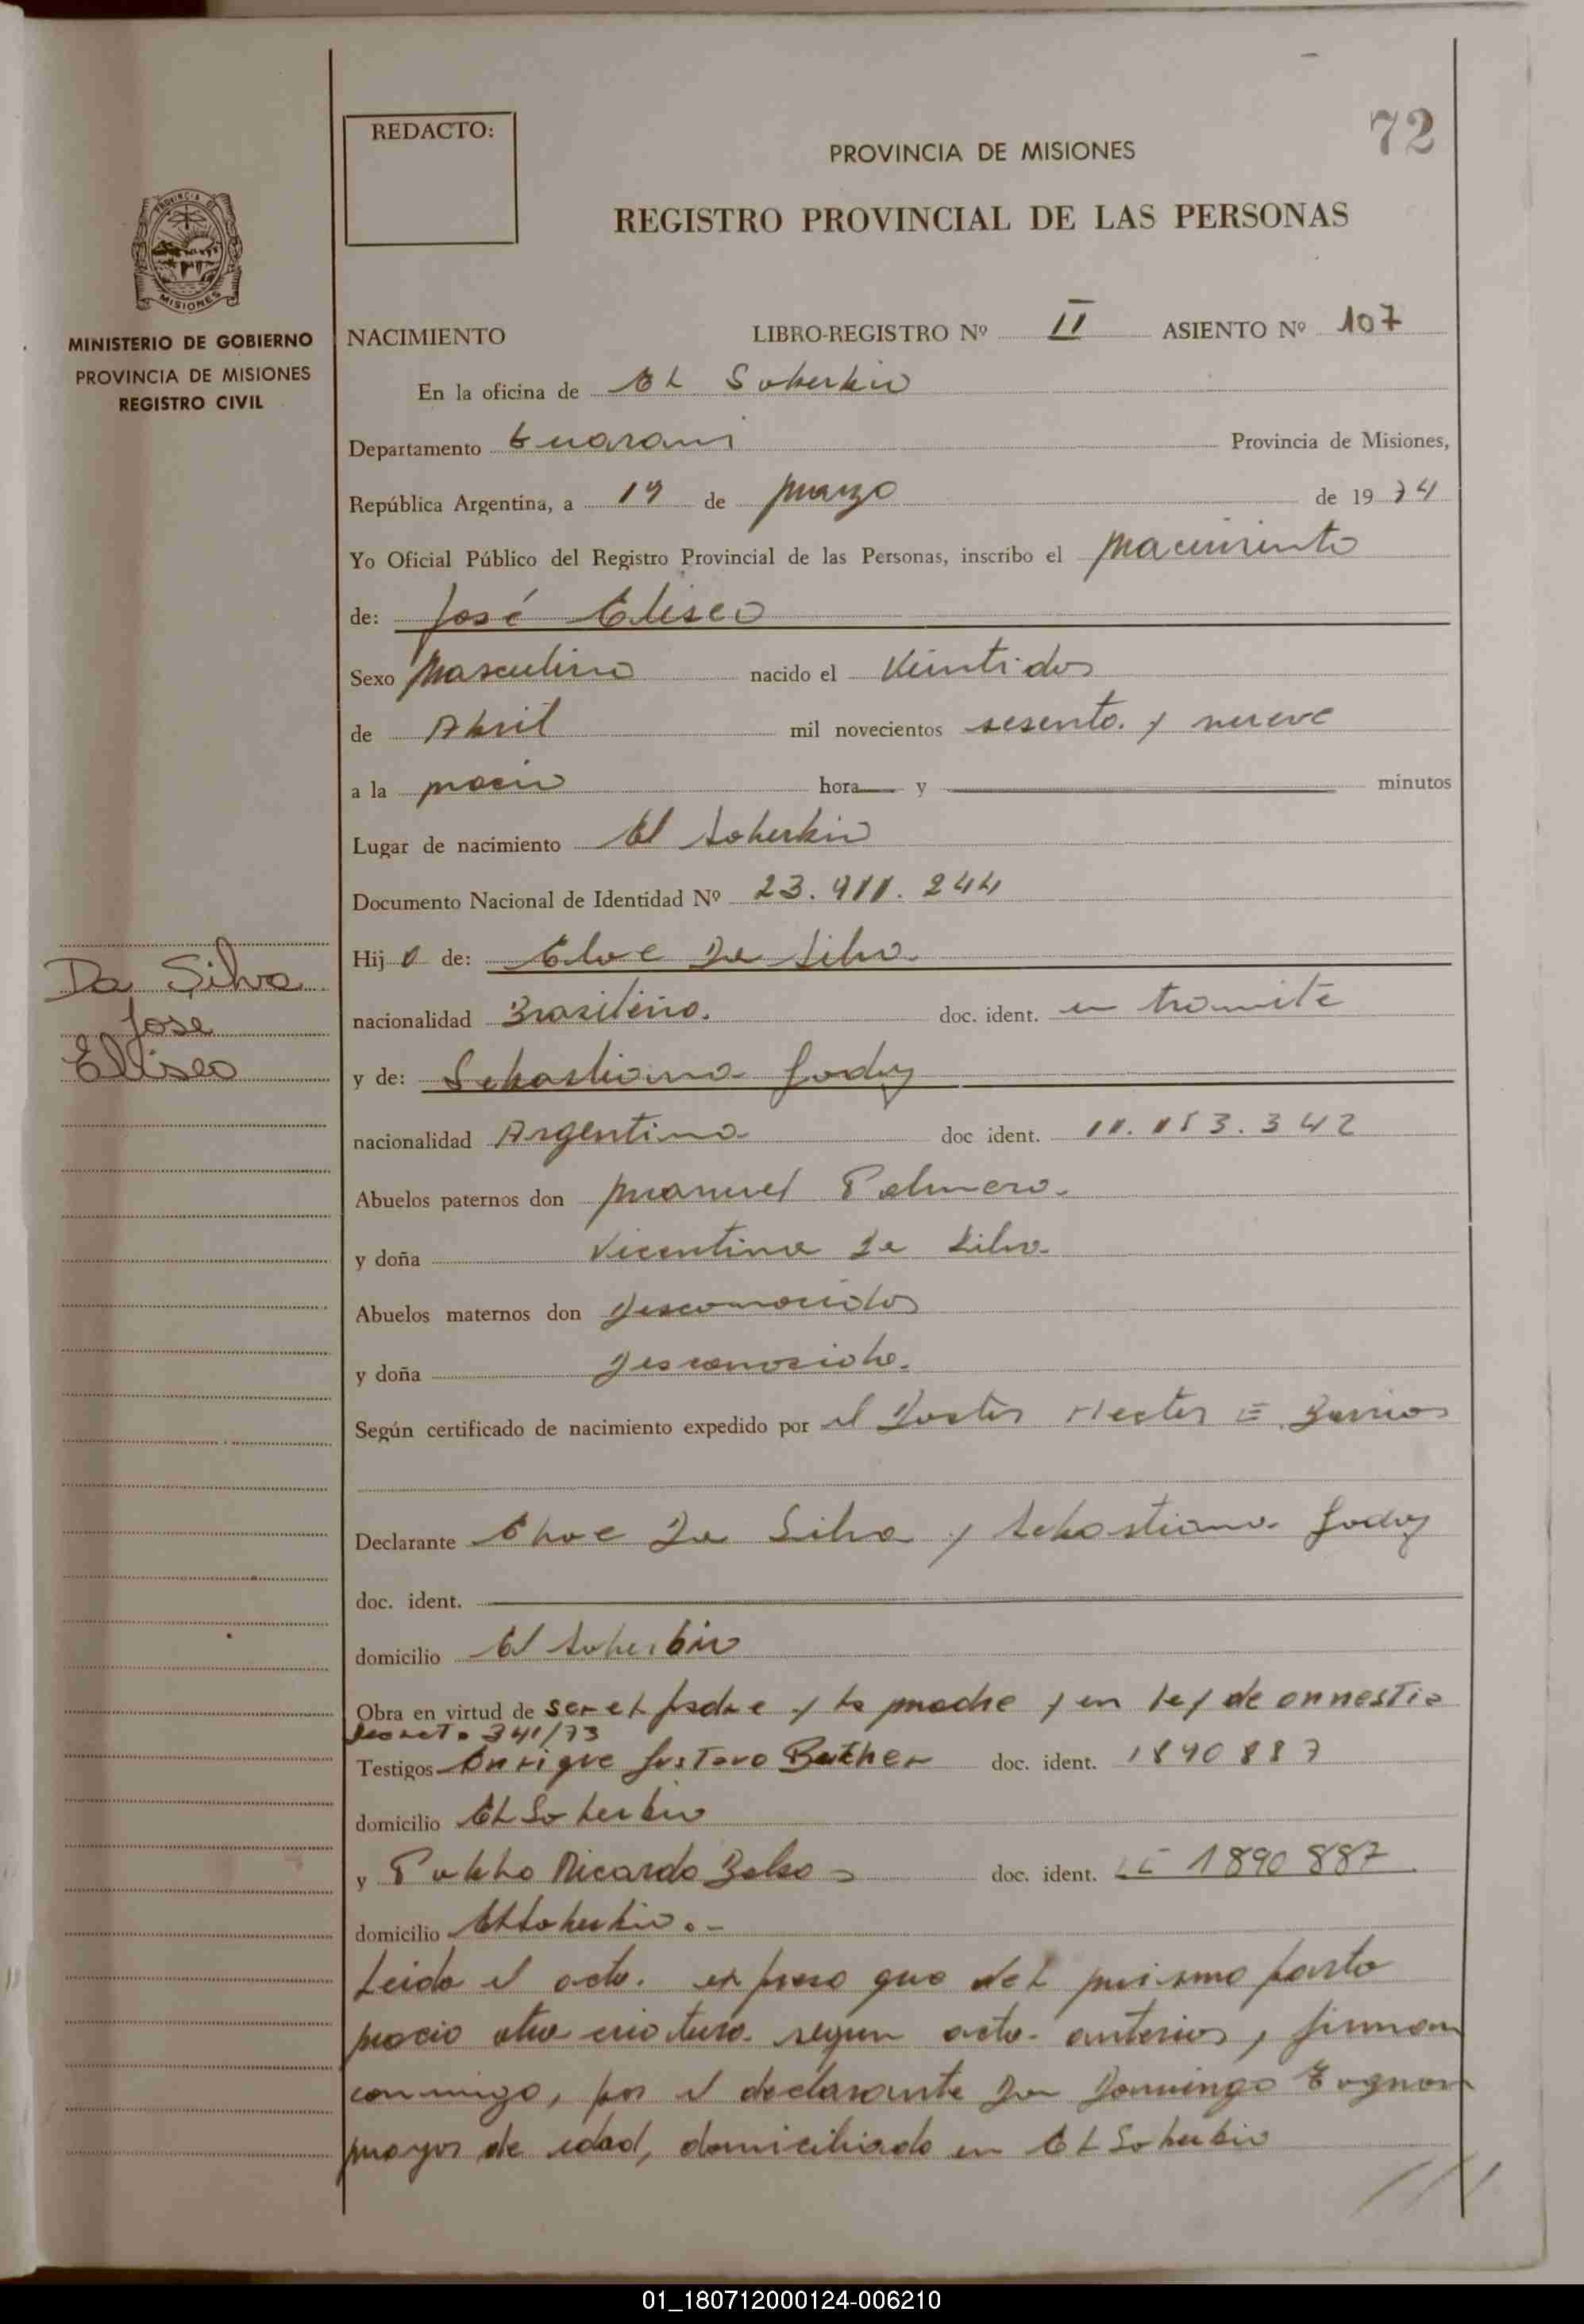 72
REDACTO:
PROVINCIA DE MISIONES
REGISTRO PROVINCIAL DE LAS PERSONAS
PROVINCIA DE
MISIONES
MINISTERIO DE GOBIERNO
PROVINCIA DE MISIONES
REGISTRO CIVIL
NACIMIENTO LIBRO-REGISTRO Nº II ASIENTO Nº 107
En la oficina de El Soberbio
Departamento Guarani Provincia de Misiones,
República Argentina, a 19 de marzo de 1974
Yo Oficial Público del Registro Provincial de las Personas, inscribo el nacimiento
de: José Eliseo
Sexo Masculino nacido el Veintidos
de Abril mil novecientos sesenta y nueve
a la hora y minutos
Lugar de nacimiento El Soberbio
Documento Nacional de Identidad Nº 23.911.244
Hijo de: Da Silva
Da Silva
Jose
Elliseo
nacionalidad Brasileña doc. ident. en tramite
y de: Sebastiana Godoy
nacionalidad Argentina doc ident. 11.153.342
Abuelos paternos don Manuel
y doña Vicentina Da Silva
Abuelos maternos don Desconocidos
y doña Desconosida
Según certificado de nacimiento expedido por el Doctor Hector E. Barrios
Declarante Da Silva y Sebastiana Godoy
doc. ident.
domicilio El Soberbio
Obra en virtud de ser el padre y la madre y en ley de annestia
Decreto 341/73
Testigos Enrique Gustavo doc. ident. 1890887
domicilio El Soberbio
y Ricardo doc. ident. LE 1890887
domicilio El Soberbio.-
Leida el acta. expreso que del mismo parto
nacio otra criatura segun acta anterior, firman
conmigo, por el declarante Don Domingo
mayor de edad, domiciliado en El Soberbio
///
01_180712000124-006210